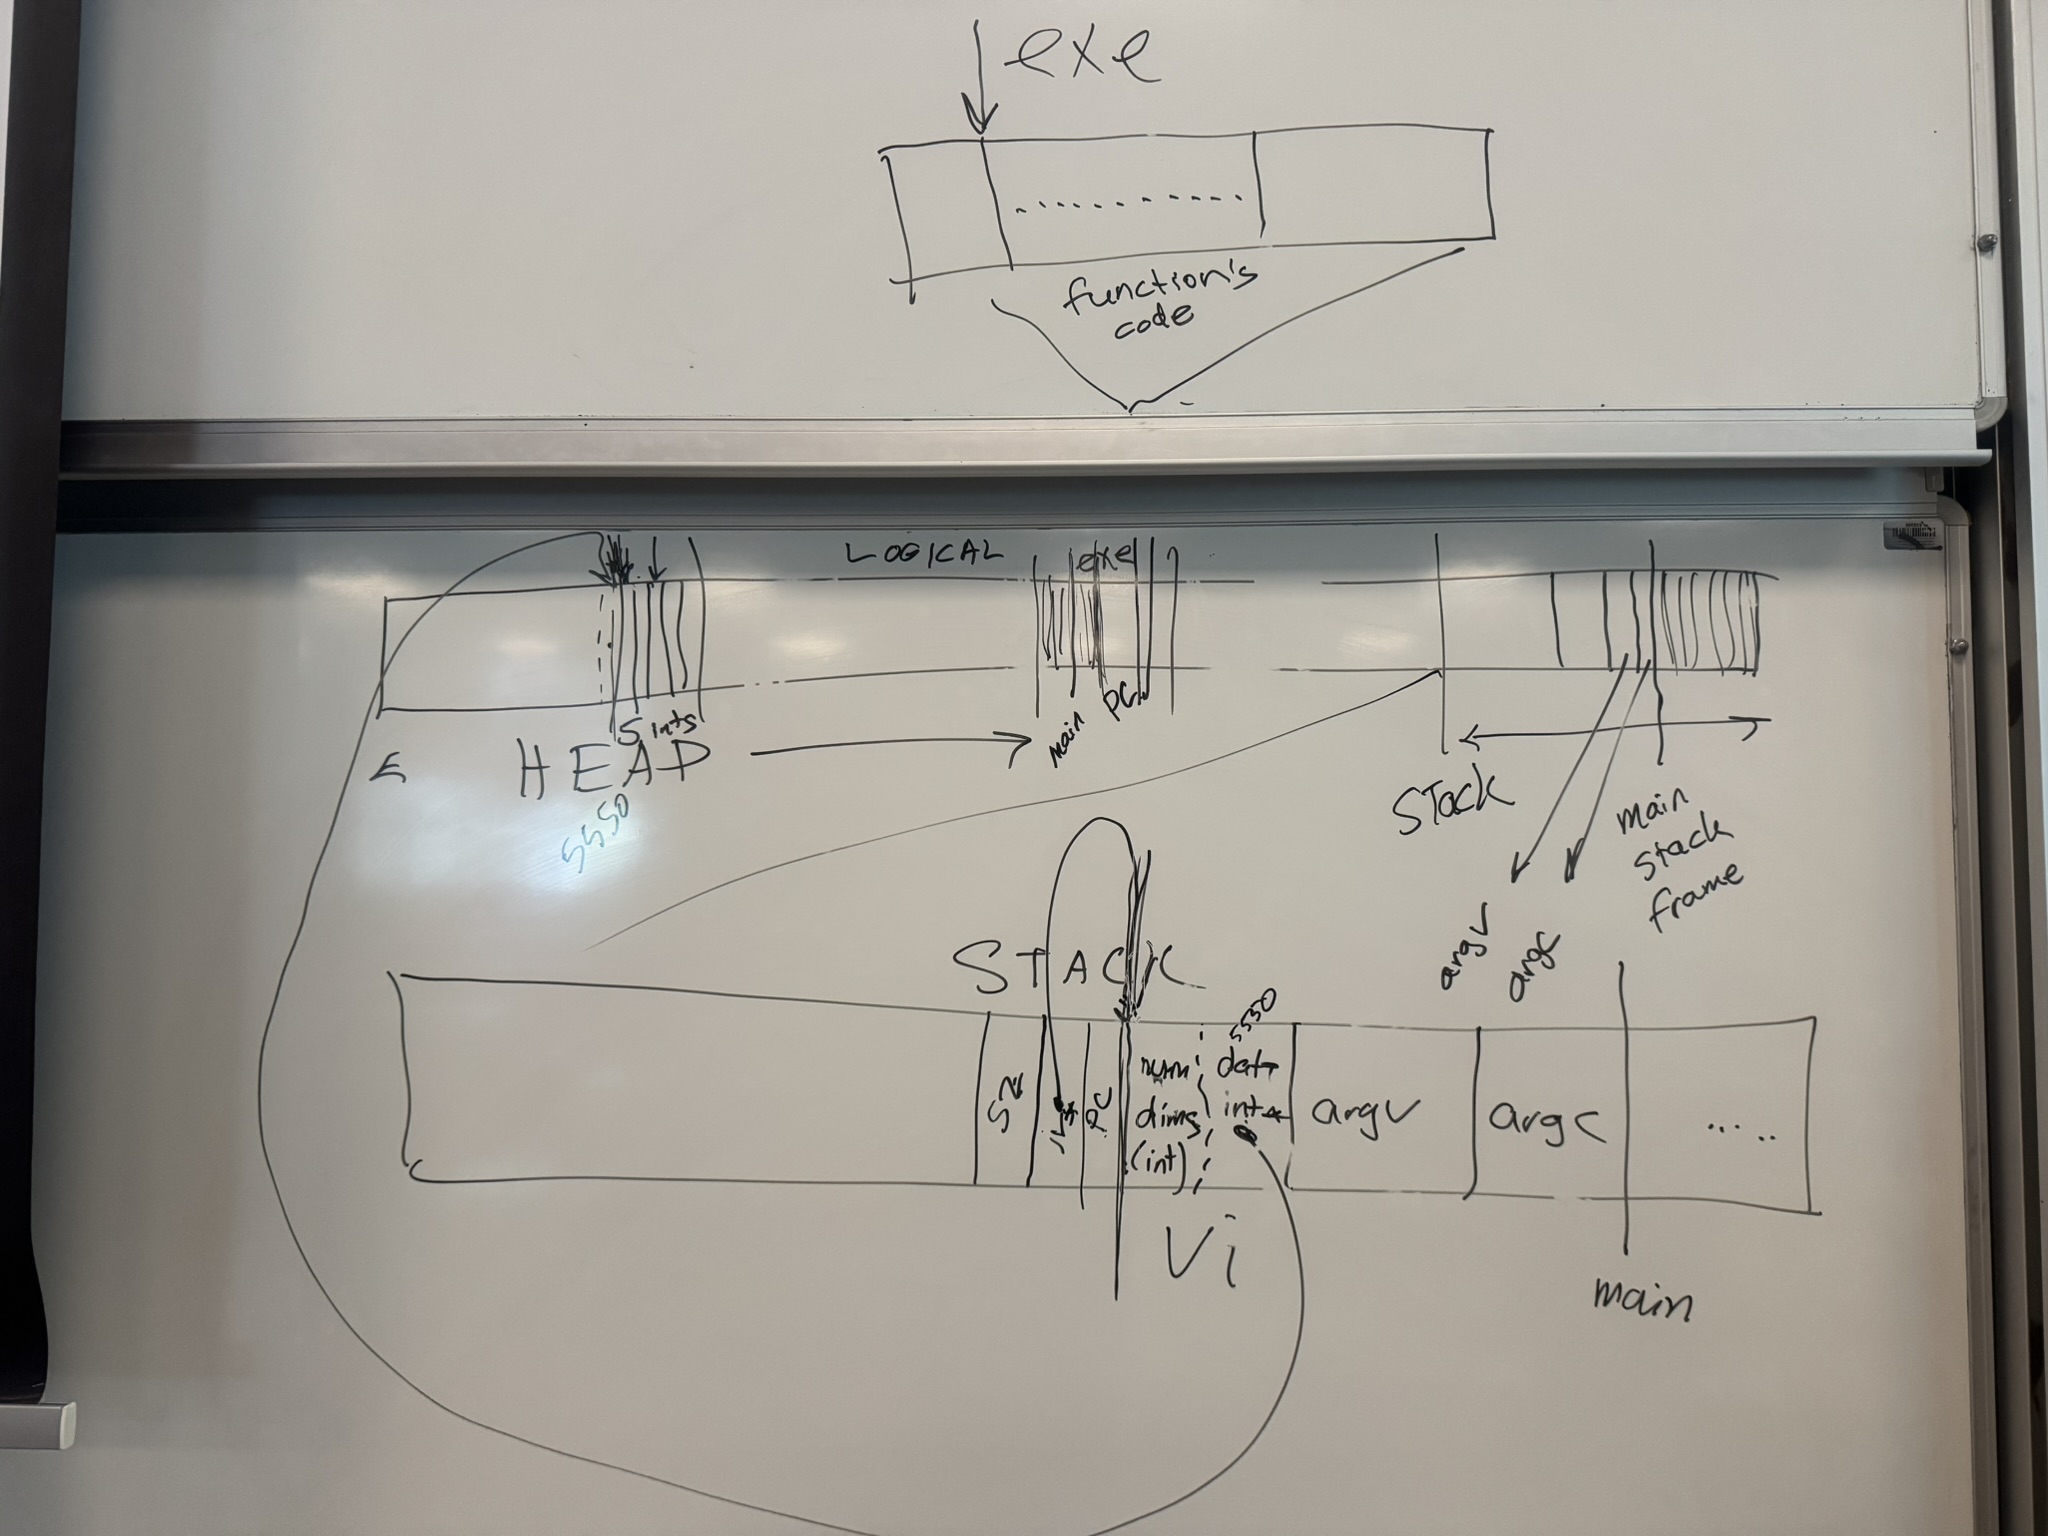 exe
function's
code
LOGICAL
exe
5 ints
main
PC
HEAP
5550
Stack
main
stack
frame
argv
argc
STACK
5550
52
PC
num
dims
(int)
data
int*
argv
argc
.....
Vi
main